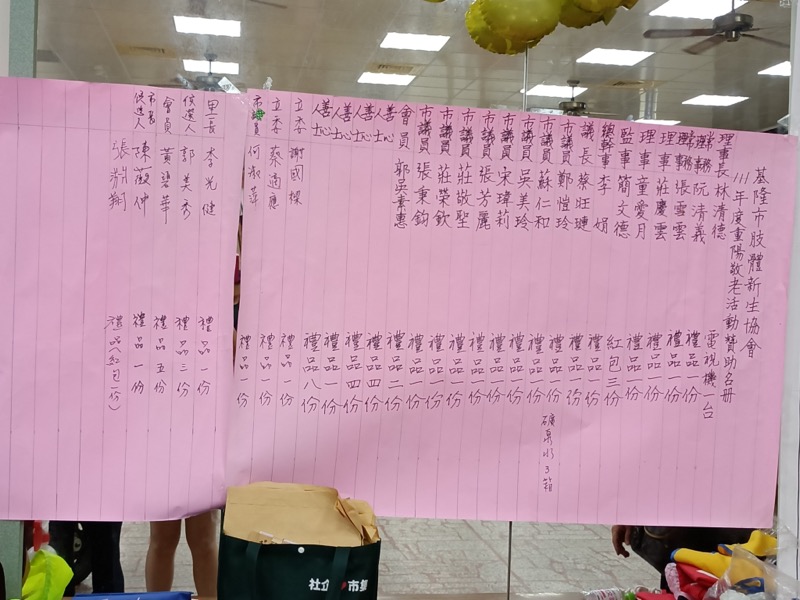 基隆市肢體新生協會
111年度重陽敬老活動贊助名冊
理事長 林清德 電視機一台
常務理事 阮清義 禮品一份
常務理事 張雪雲 禮品一份
理事 莊慶雲 禮品一份
理事 童愛月 禮品一份
監事 簡文德 禮品一份
總幹事 李娟 紅包三份
議長 蔡旺璉 禮品一份
市議員 鄭愷玲 禮品一份
市議員 蘇仁和 禮品一份 礦泉水3箱
市議員 吳美玲 禮品一份
市議員 宋瑋莉 禮品一份
市議員 張芳麗 禮品一份
市議員 莊敬聖 禮品一份
市議員 莊榮欽 禮品一份
市議員 張秉鈞 禮品一份
會員 郭吳素惠 禮品二份
善心人 禮品四份
善心人 禮品四份
善心人 禮品一份
善心人 禮品八份
立委 謝國樑 禮品一份
立委 蔡適應 禮品一份
市議員 何淑萍 禮品一份
里長 李光健 禮品一份
候選人 郭美秀 禮品三份
會員 黃碧華 禮品五份
市長候選人 陳薇仲 禮品一份
張淵翔 禮品(紅包一份)
社立 市